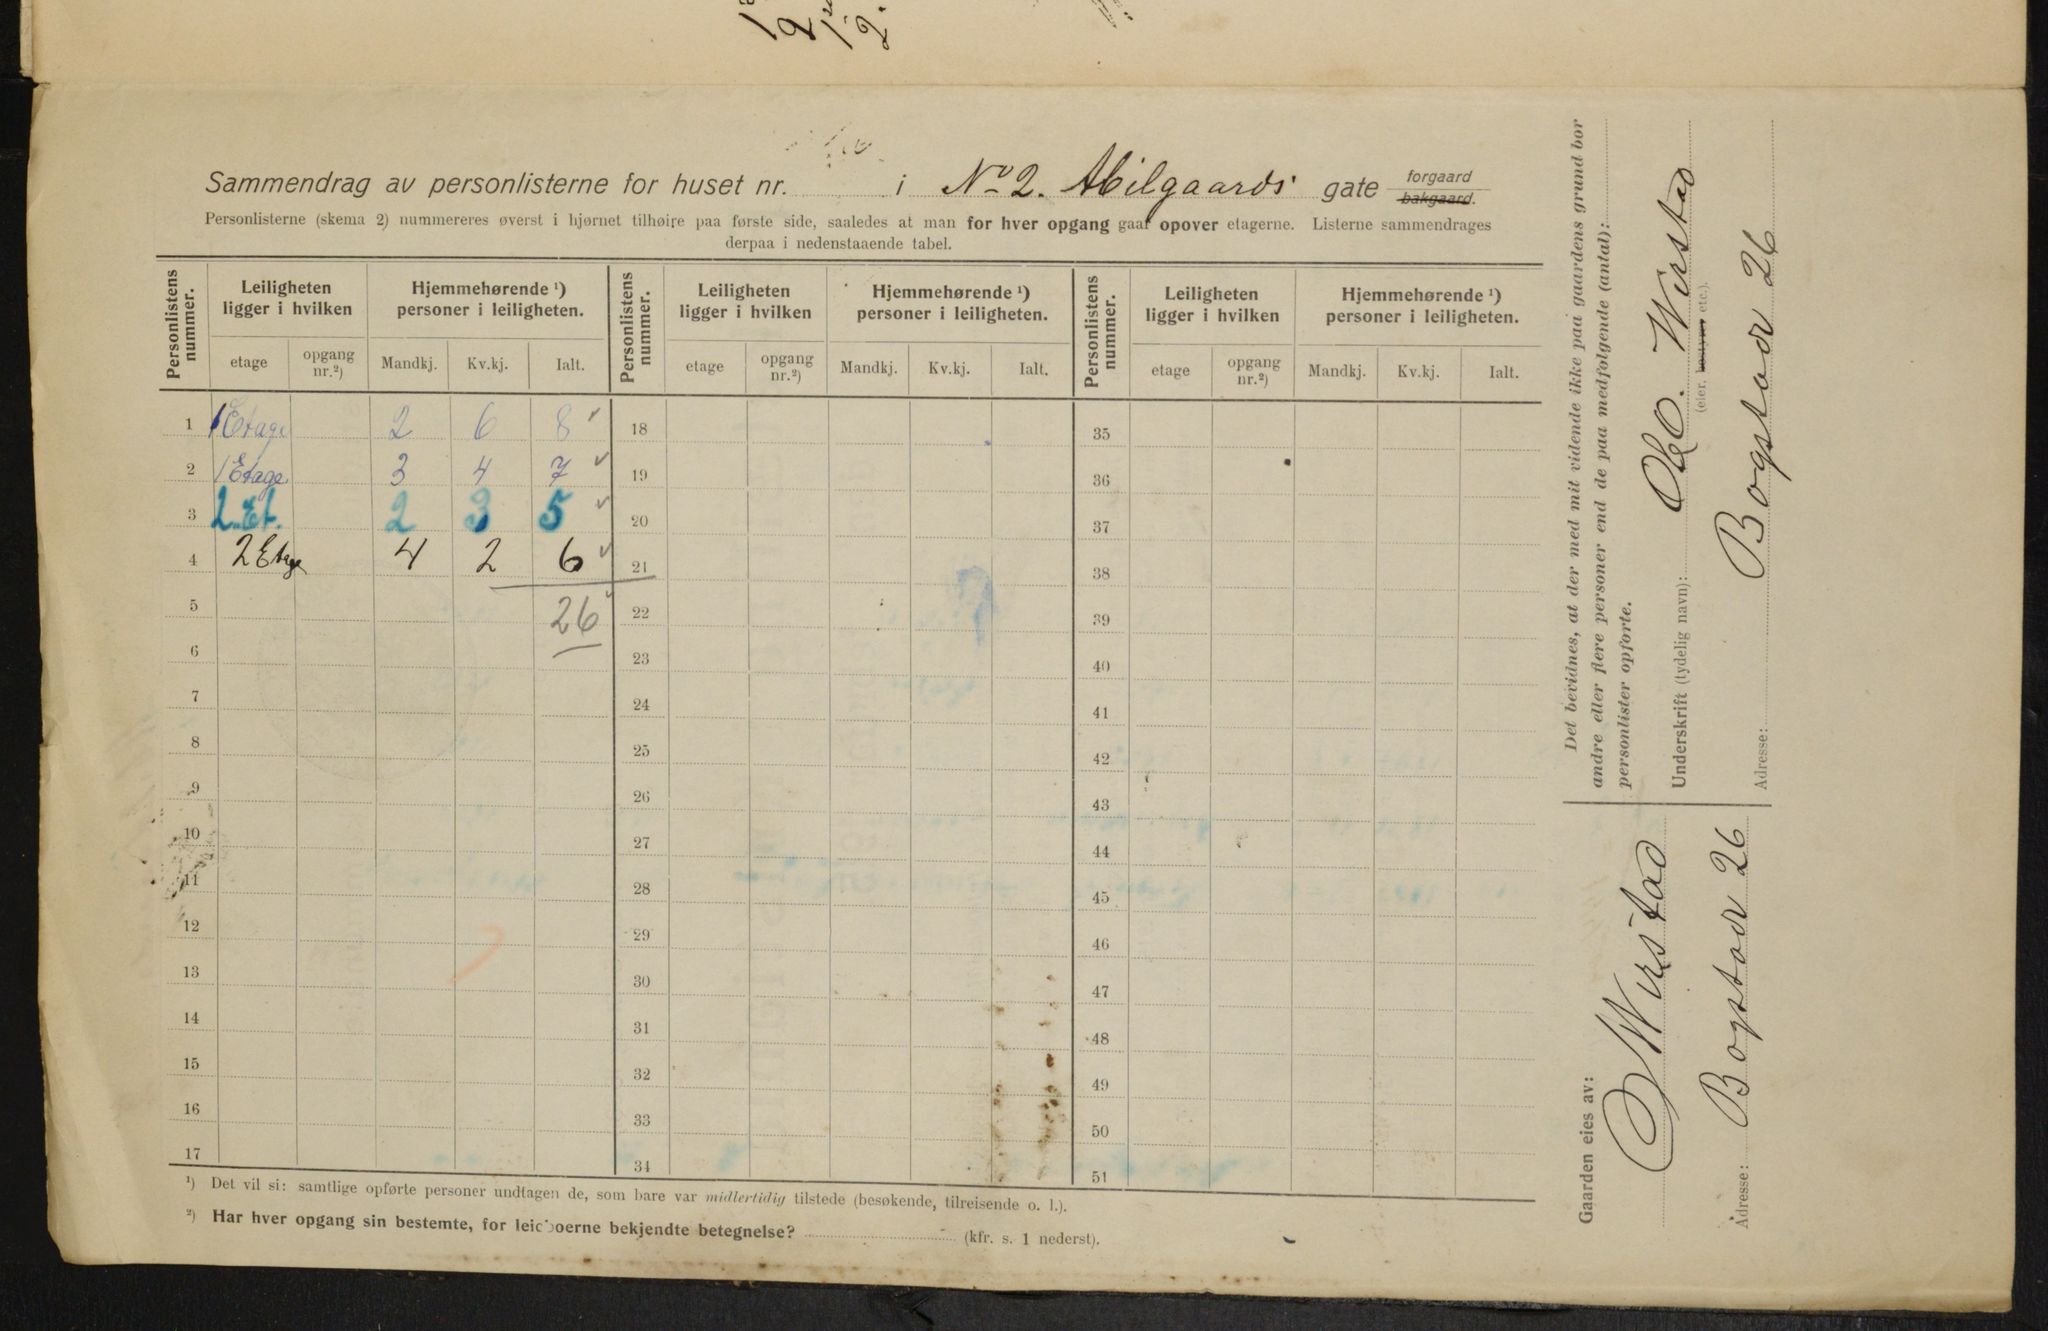 Sammendrag av personlisterne for huset nr. i No 2. Abilgaards gate forgaard bakgaard.
Personlisterne (skema 2) nummereres øverst i hjørnet tilhøire paa første side, saaledes at man for hver opgang gaar opover etagerne. Listerne sammendrages
derpaa i nedenstaaende tabel.
Personlistens nummer. Leiligheten ligger i hvilken Hjemmehørende ¹) personer i leiligheten. Personlistens nummer. Leiligheten ligger i hvilken Hjemmehørende ¹) personer i leiligheten. Personlistens nummer. Leiligheten ligger i hvilken Hjemmehørende ¹) personer i leiligheten.
etage opgang nr.²) Mandkj. Kv.kj. Ialt. etage opgang nr.²) Mandkj. Kv.kj. Ialt. etage opgang nr.²) Mandkj. Kv.kj. Ialt.
1 1 Etage 2 6 8 18 35
2 1 Etage 3 4 7 19 36
3 2. Et. 2 3 5 20 37
4 2 Etage 4 2 6 21 38
5 26 22 39
6 23 40
7 24 41
8 25 42
9 26 43
10 27 44
11 28 45
12 29 46
13 30 47
14 31 48
15 32 49
16 33 50
17 34 51
¹) Det vil si: samtlige opførte personer undtagen de, som bare var midlertidig tilstede (besøkende, tilreisende o. l.).
²) Har hver opgang sin bestemte, for leieboerne bekjendte betegnelse? (kfr. s. 1 nederst).
Det bevidnes, at der med mit vidende ikke paa gaardens grund bor
andre eller flere personer end de paa medfølgende (antal):
personlister opførte.
Underskrift (tydelig navn): Wirstad
(eier, bestyrer etc.).
Adresse: Bogstadv 26
Gaarden eies av:
Wirstad
Adresse: Bogstadv 26